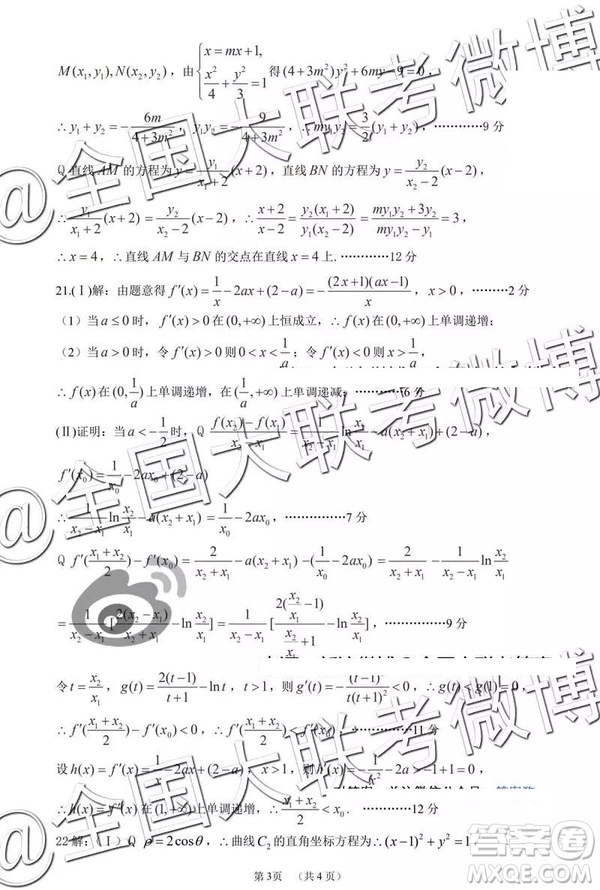 M(x₁,y₁),N(x₂,y₂),由{x=mx+1, x²/4+y²/3=1 得(4+3m²)y²+6my-9=0,
∴y₁+y₂=-6m/(4+3m²),y₁y₂=-9/(4+3m²),∴my₁y₂=(3/2)(y₁+y₂),…………9分
Q 直线AM的方程为y=y₁/(x₁+2)(x+2),直线BN的方程为y=y₂/(x₂-2)(x-2),
∴y₁/(x₁+2)(x+2)=y₂/(x₂-2)(x-2),∴(x+2)/(x-2)=y₂(x₁+2)/y₁(x₂-2)=(my₁y₂+3y₂)/(my₁y₂-y₁)=3,
∴x=4,∴直线AM与BN的交点在直线x=4上.…………12分
21.(Ⅰ)解:由题意得f′(x)=1/x-2ax+(2-a)=-(2x+1)(ax-1)/x,x>0,………2分
(1)当a≤0时,f′(x)>0在(0,+∞)上恒成立,∴f(x)在(0,+∞)上单调递增;
(2)当a>0时,令f′(x)>0则0<x<1/a;令f′(x)<0则x>1/a,
∴f(x)在(0,1/a)上单调递增,在(1/a,+∞)上单调递减;…………6分
(Ⅱ)证明:当a<-1/2时,Q (f(x₂)-f(x₁))/(x₂-x₁)=1/(x₂-x₁)ln x₂/x₁-a(x₂+x₁)+(2-a),
f′(x₀)=1/x₀-2ax₀+(2-a)
∴1/(x₂-x₁)ln x₂/x₁-a(x₂+x₁)=1/x₀-2ax₀,……………7分
Q f′((x₁+x₂)/2)-f′(x₀)=2/(x₂+x₁)-a(x₂+x₁)-(1/x₀-2ax₀)=2/(x₂+x₁)-1/(x₂-x₁)ln x₂/x₁
=1/(x₂-x₁)[2(x₂-x₁)/(x₂+x₁)-ln x₂/x₁]=1/(x₂-x₁)[2(x₂/x₁-1)/(x₂/x₁+1)-ln x₂/x₁],……………9分
令t=x₂/x₁,g(t)=2(t-1)/(t+1)-ln t,t>1,则g′(t)=-(t-1)²/t(t+1)²<0,∴g(t)<g(1)=0,
∴f′((x₁+x₂)/2)-f′(x₀)<0,∴f′((x₁+x₂)/2)<f′(x₀),……………11分
设h(x)=f′(x)=1/x-2ax+(2-a),x>1,则h′(x)=-1/x²-2a>0,
∴h(x)=f′(x)在(1,+∞)上单调递增,∴(x₁+x₂)/2<x₀.……………12分
22解:(Ⅰ)Q ρ=2cosθ,∴曲线C₂的直角坐标方程为∴(x-1)²+y²=1,
第3页 (共4页)
@全国大联考微博
@全国大联考微博
@全国大联考微博
答案圈